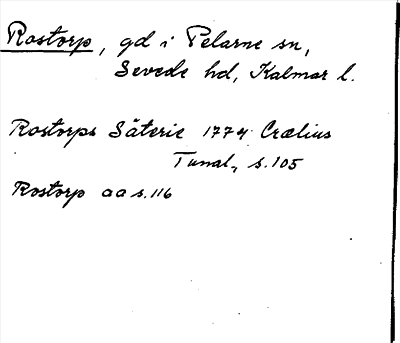 Rostorp, gd i Pelarne sn,
Sevede hd, Kalmar l.
Rostorps Säterie 1774 Crælius
Tunal., s.105
Rostorp aa s.116